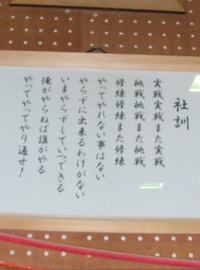 社訓
実戦実戦また実戦
挑戦挑戦また挑戦
修練修練また修練
やってやれない事はない
やらずに出来るわけがない
いまやらずしていつできる
俺がやらねば誰がやる
やってやってやり通せ!